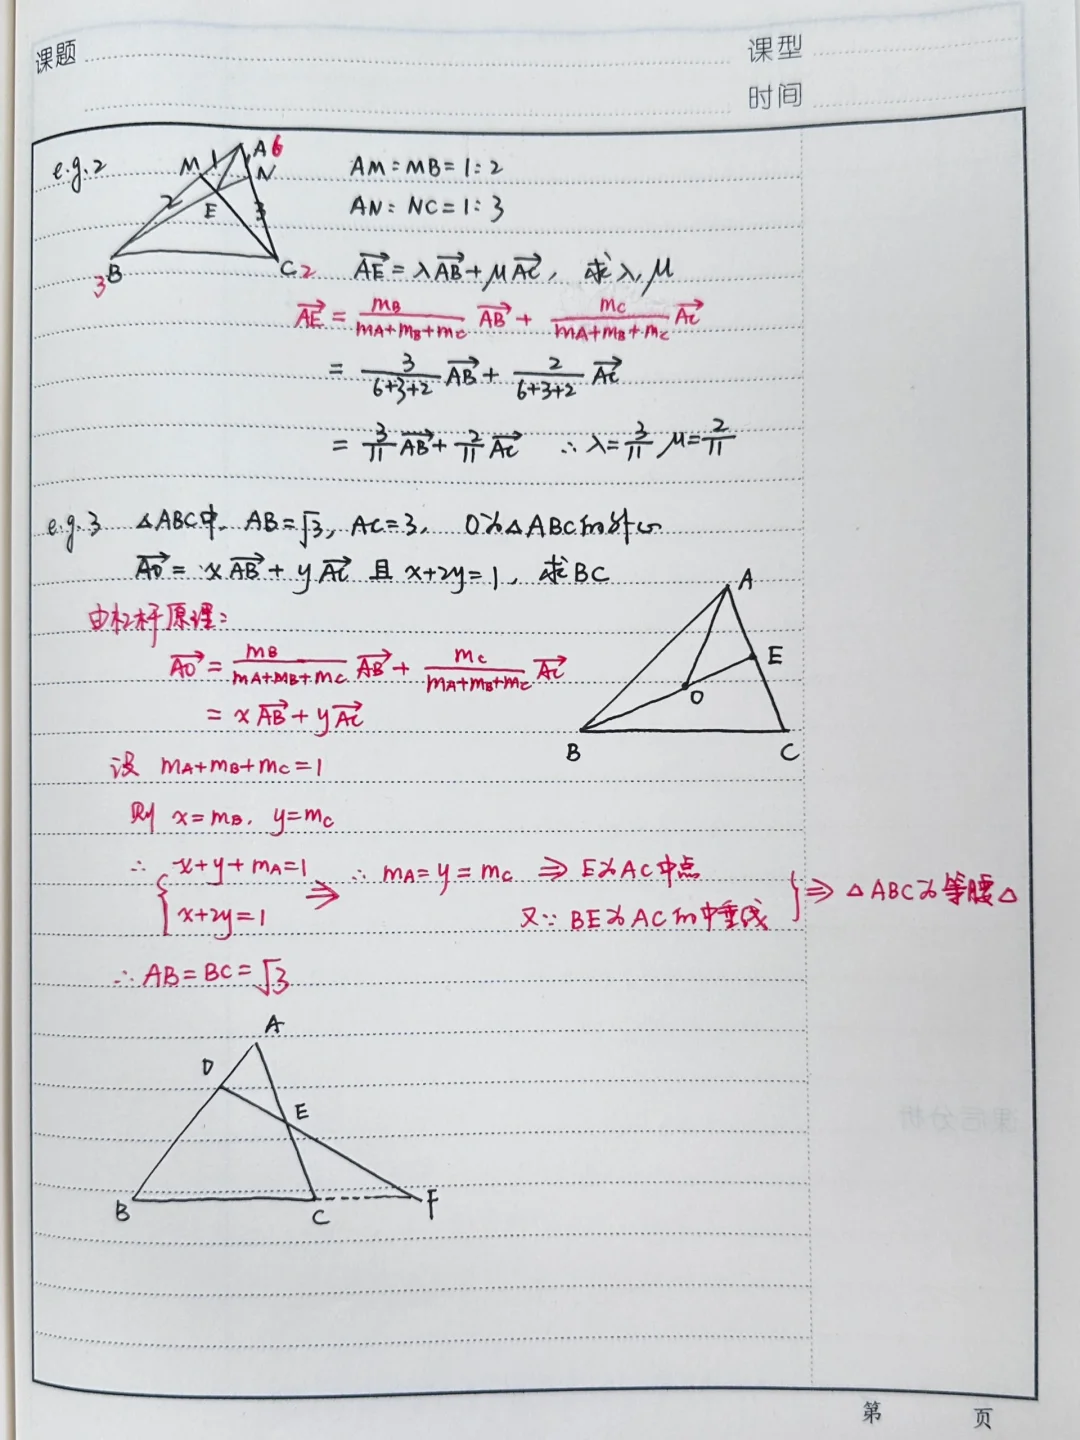 课题
课型
时间
e.g.2
M 1 A 6
N
2 E 3
3 B C 2
AM:MB=1:2
AN:NC=1:3
AE=λAB+μAC, 求λ,μ
AE = mB/(mA+mB+mC) AB + mC/(mA+mB+mC) AC
= 3/(6+3+2) AB + 2/(6+3+2) AC
= 3/11 AB + 2/11 AC ∴ λ=3/11 μ=2/11
e.g.3 △ABC中. AB=√3, AC=3. O为△ABC的外心
AO = xAB + yAC 且 x+2y=1, 求BC
由杠杆原理:
AO = mB/(mA+mB+mC) AB + mC/(mA+mB+mC) AC
= xAB + yAC
A
E
O
B C
设 mA+mB+mC=1
则 x=mB, y=mC
∴ { x+y+mA=1 ⇒ ∴ mA=y=mC ⇒ E为AC中点
x+2y=1 又∵ BE为AC的中垂线 } ⇒ △ABC为等腰△
∴ AB=BC=√3
A
D
E
B C F
课后分析
第 页